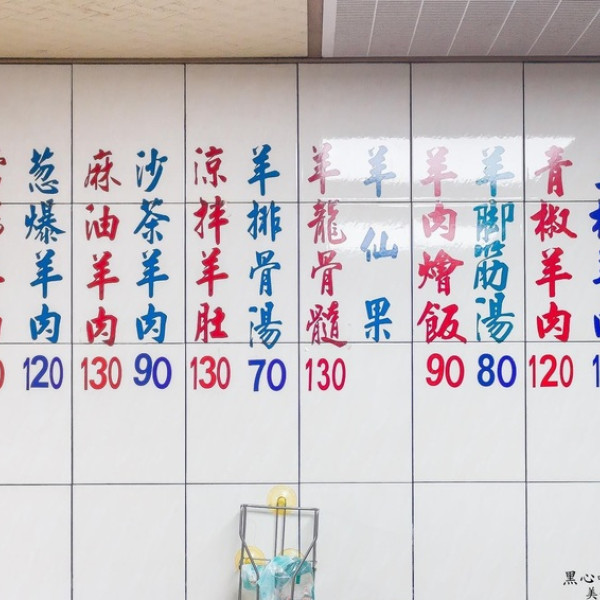 青椒羊肉
120
羊腳筋湯
80
羊肉燴飯
90
羊仙果
羊龍骨髓
130
羊排骨湯
70
涼拌羊肚
130
沙茶羊肉
90
麻油羊肉
130
葱爆羊肉
120
黑心
美